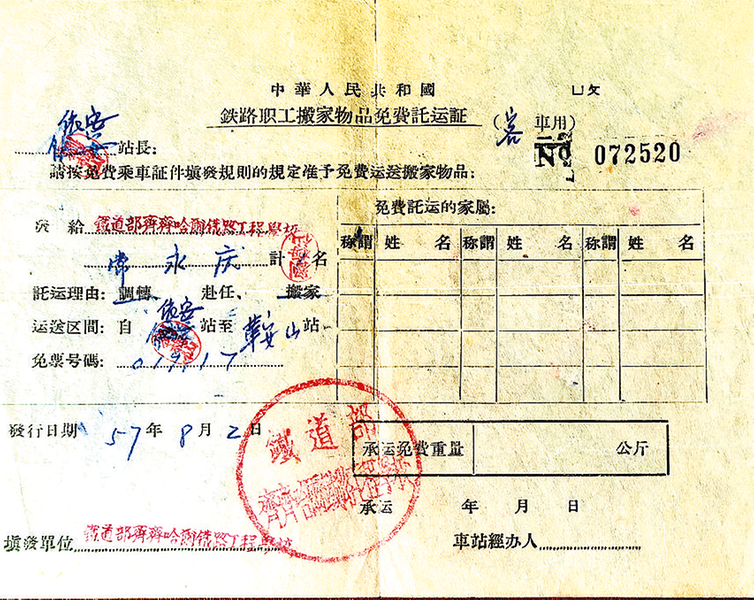 中華人民共和國
鉄路职工搬家物品免費託运証
(客車用)
№ 072520
依安
站長:
請按免費乘車証件填發規則的規定准予免費运送搬家物品:
发給 鐵道部齊齊哈爾鐵路工程學校
常永庆 計 名
託运理由: 調轉、赴任、搬家
运送区間: 自 依安 站至 鞍山 站
免票号碼: 017117
發行日期 57年8月2日
填發單位 鐵道部齊齊哈爾鐵路工程學校
免費託运的家屬:
称謂 姓名 称謂 姓名 称謂 姓名
承运免費重量 公斤
承运 年 月 日
車站經办人
鐵道部
齊齊哈爾鐵路工程學校